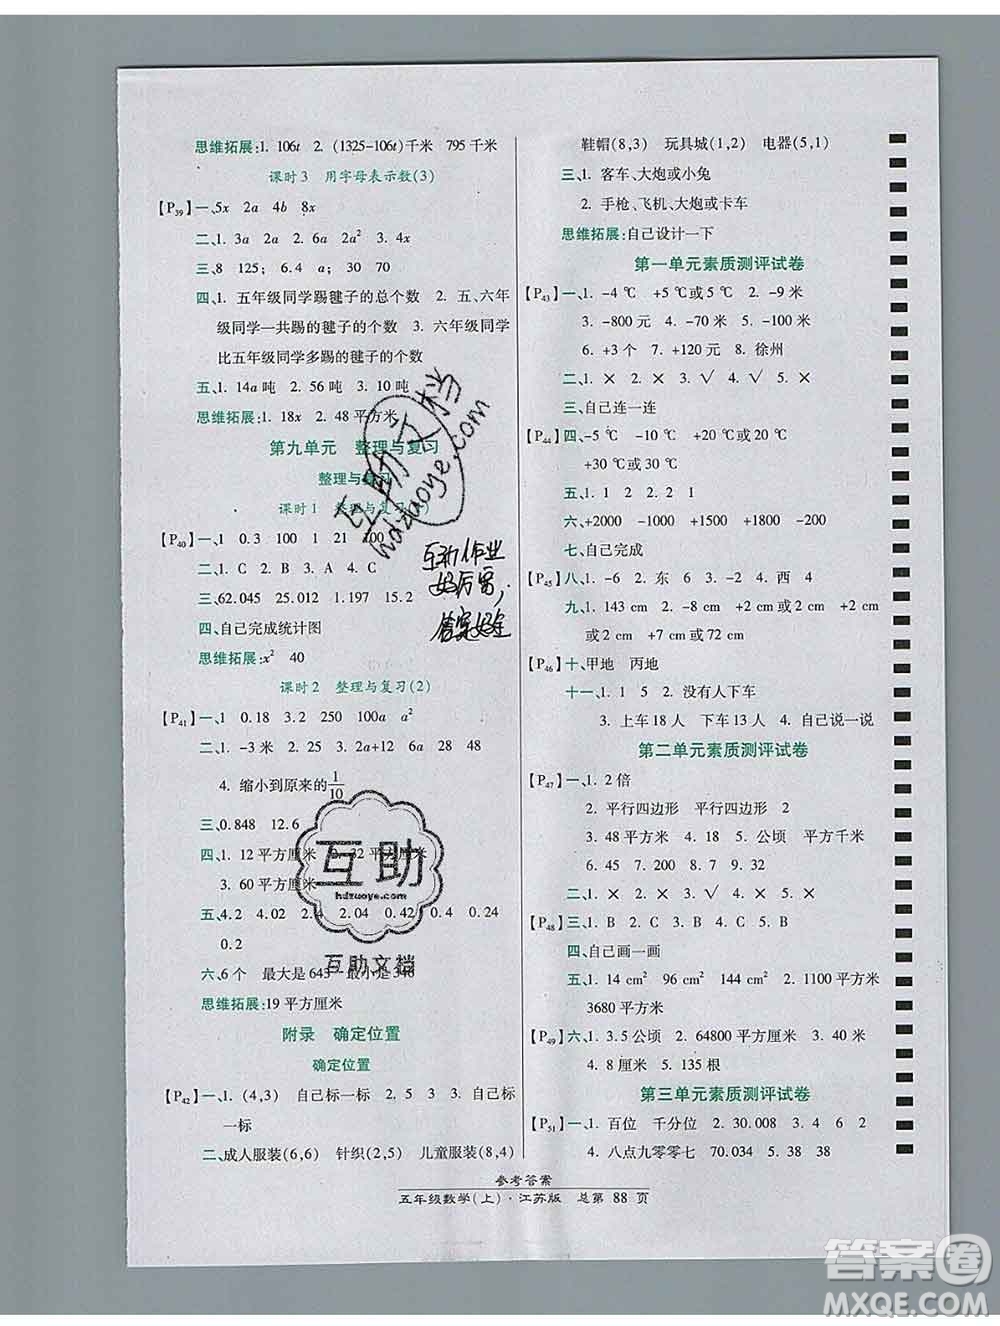 思维拓展:1. 106t 2. (1325-106t)千米 795 千米
课时 3 用字母表示数(3)
【P39】一、5x 2a 4b 8x
二、1. 3a 2a 2. 50x 2a² 3. 4x
三、8 125; 6.4 a; 30 70
四、1. 五年级同学踢毽子的总个数 2. 五、六年
级同学一共踢的毽子的个数 3. 六年级同学
比五年级同学多踢的毽子的个数
五、1. 14a 吨 2. 56 吨 3. 10 吨
思维拓展:1. 18x 2. 48 平方米
第九单元 整理与复习
整理与复习
课时 1 整理与复习(1)
【P40】一、1 0.3 100 1 21 100
二、1. C 2. B 3. A 4. C 5.
三、62.045 25.012 1.197 15.2
四、自己完成统计图
思维拓展:x² 40
课时 2 整理与复习(2)
【P41】一、1 0.18 3.2 250 100a a²
二、1. -3 米 2. 30 3. 2a+12 6a 28 48
4. 缩小到原来的1/10
三、0.848 12.6
四、1. 12 平方厘米 32 平方厘米
3. 60 平方厘米
五、4.2 4.02 2.4 2.04 0.42 0.4 0.24
0.2
六、6 个 最大是 643 最小是 346
思维拓展:19 平方厘米
附录 确定位置
确定位置
【P42】一、1. (4,3) 自己标一标 2. 5 3 3. 自己标
一标
二、成人服装(6,6) 针织(2,5) 儿童服装(8,4)
鞋帽(8,3) 玩具城(1,2) 电器(5,1)
三、1. 客车、大炮或小兔
2. 手枪、飞机、大炮或卡车
思维拓展:自己设计一下
第一单元素质测评试卷
【P43】一、1. -4 ℃ +5 ℃或5 ℃ 2. -9 米
3. -800 元 4. -70 米 5. -100 米
6. +3 个 7. +120 元 8. 徐州
二、1. × 2. × 3. √ 4. √ 5. ×
三、自己连一连
【P44】四、-5 ℃ -10 ℃ +20 ℃或20 ℃
+30 ℃或30 ℃
五、1. C 2. A 3. C 4. B 5. C
六、+2000 -1000 -1500 +2500
七、自己完成
【P45】八、1. -6 2. 东 6 3. -2 4. 西 4
九、1. 143 cm 2. -8 cm +2 cm或2 cm +2 cm
或2 cm +7 cm 或 72 cm
【P46】十、甲地 丙地
十一、1. 1 5 2. 没有人下车
3. 上车18 人 下车13 人 4. 自己说一说
第二单元素质测评试卷
【P47】一、1. 2 倍
2. 平行四边形 平行四边形 2
3. 48 平方米 4. 18 5. 公顷 平方千米
6. 45 7. 200 8. 7 9. 32
二、1. × 2. × 3. √ 4. × 5. ×
【P48】三、1. B 2. C 3. B 4. C 5. B
四、自己画一画
五、1. 14 cm² 96 cm² 144 cm² 2. 1100 平方米
3680 平方米
【P49】六、1. 3.5 公顷 2. 64800 平方厘米 3. 40 米
4. 8 厘米 5. 135 根
第三单元素质测评试卷
【P51】一、1. 百位 千分位 2. 30.008 3. 4 6 2
4. 八点九零零七 70.034 5. 38 38
参考答案
五年级数学(上)·江苏版 总第 88 页
互助文档
hdzuoye.com
互动作业
好厉害,
答案好全
互助
hdzuoye.com
互助文档
答案圈
MXQE.COM